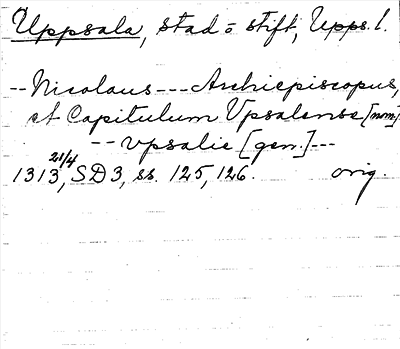 Uppsala, stad o stift, Upps. l.
-- Nicolaus --- Archiepiscopus,
et Capitulum Vpsalense [nom].
-- vpsalie [gen.] ---
1313 21/4, SD3, ss. 125, 126. orig.